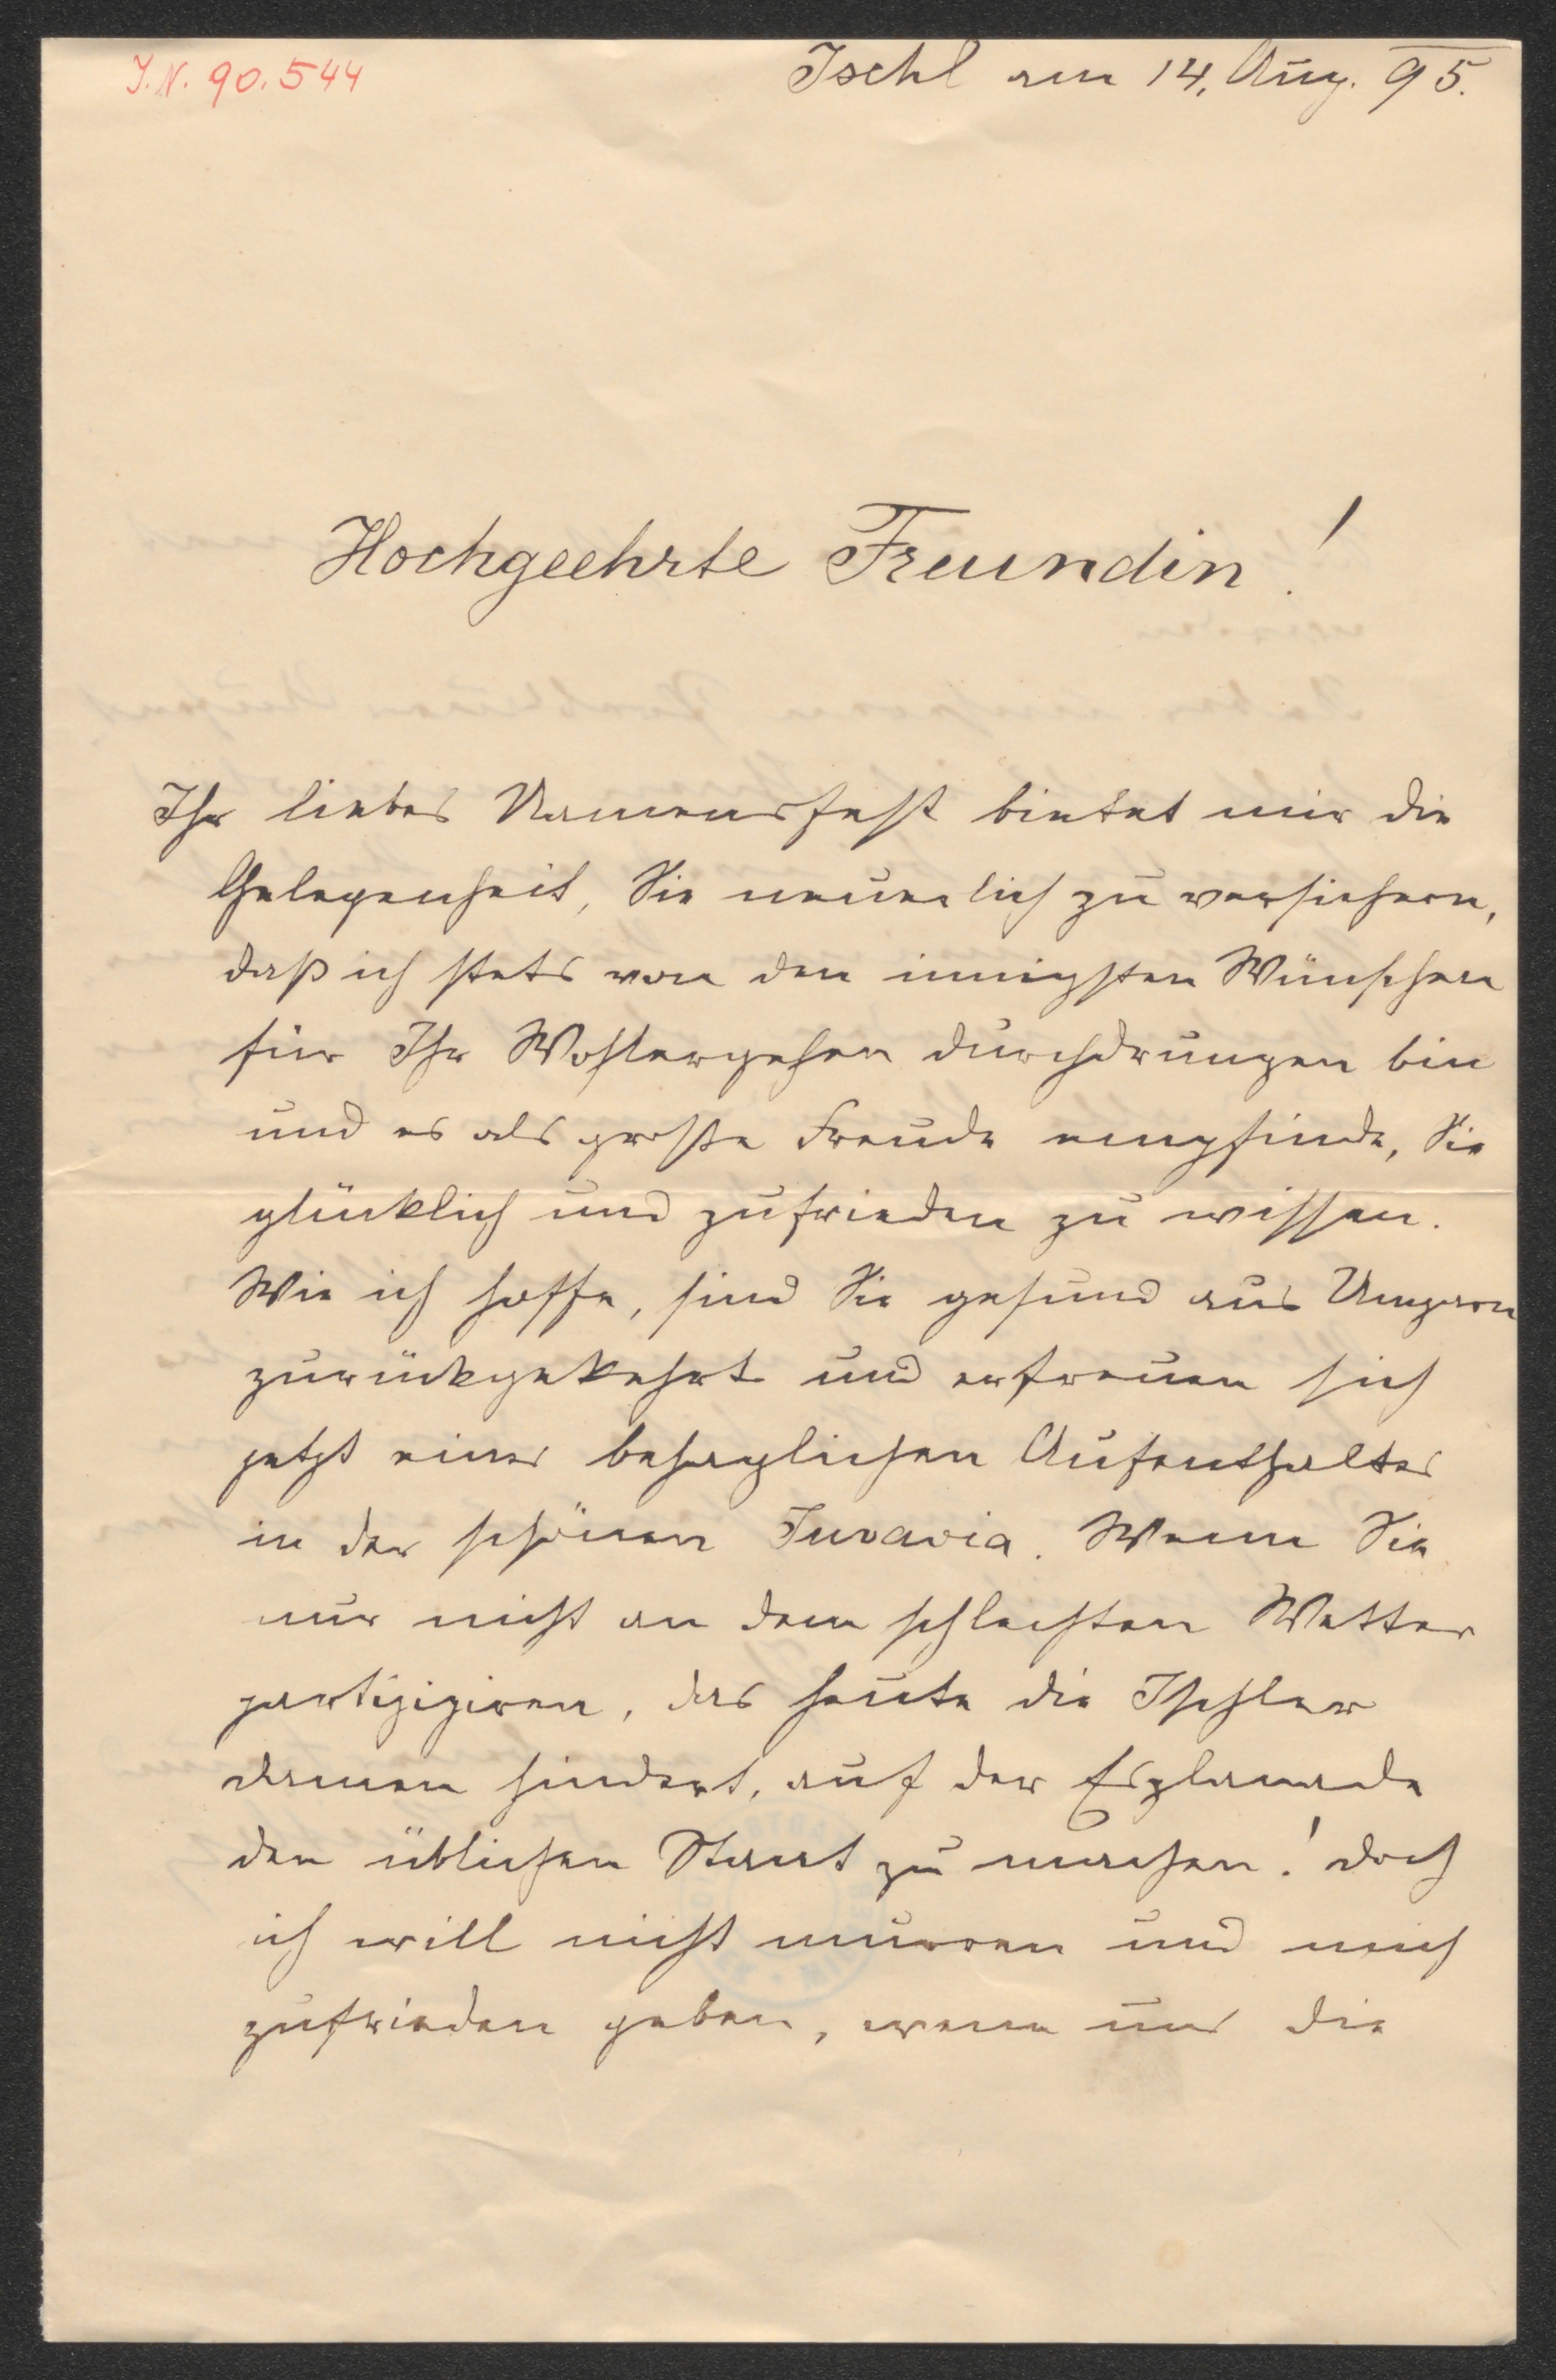 J.N. 90.544
Ischl am 14. Aug. 95.
Hochgeehrte Freundin!
Ihr liebes Namensfest bietet mir die
Gelegenheit, Sie neuerlich zu versichern,
daß ich stets von den innigsten Wünschen
für Ihr Wohlergehen durchdrungen bin
und es als große Freude empfinde, Sie
glücklich und zufrieden zu wissen.
Wie ich hoffe, sind Sie gesund aus Ungarn
zurückgekehrt und erfreuen sich
jetzt eines behaglichen Aufenthaltes
in der schönen Juvavia. Wenn Sie
nur nicht an dem schlechten Wetter
partizipiren, das heute die Ischler
Damen hindert, auf der Esplanade
den üblichen Staat zu machen! Doch
ich will nicht murren und mich
zufrieden geben, wenn uns die